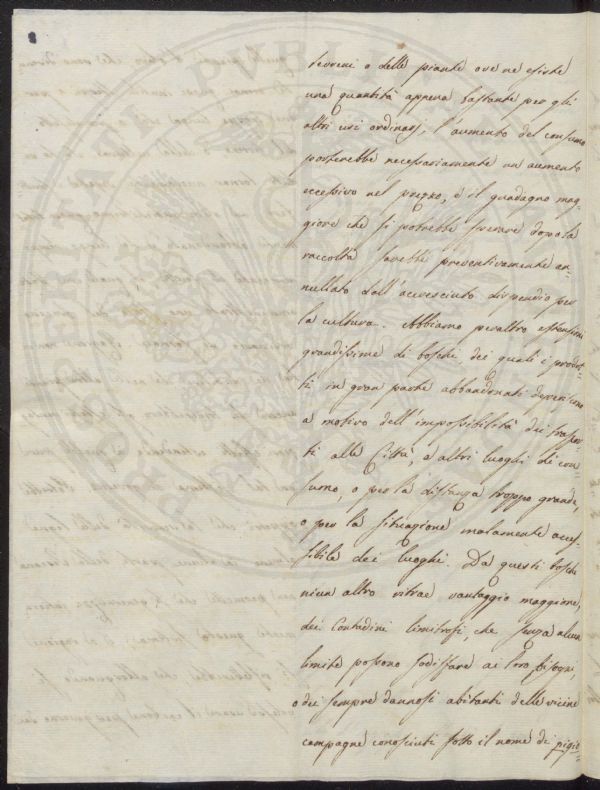 terreni o delle piante ove ne esiste
una quantità appena bastante per gli
altri usi ordinarj, l'aumento del consumo
porterebbe necessariamente un aumento
eccessivo nel prezzo, e il guadagno mag-
giore che si potrebbe sperare dopo la
raccolta sarebbe preventivamente an-
nullato dall'accresciuto dispendio per
la cultura. Abbiamo peraltro estensioni
grandissime di boschi dei quali i prodot-
ti in gran parte abbandonati deperiscono
a motivo dell'impossibilità dei traspor-
ti alle Città, e altri luoghi di con-
sumo, o per la distanza troppo grande,
o per la situazione malamente acces-
sibile dei luoghi. Da questi boschi
niun altro ritrae vantaggio maggiore,
dei Contadini limitrofi, che senza alcun
limite possono sodisfare ai loro bisogni,
o dei sempre dannosi abitanti delle vicine
campagne conosciuti sotto il nome di pigio-